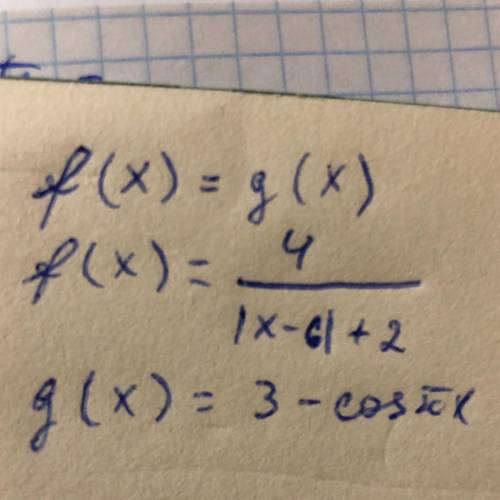 f(x) = g(x)
f(x) = 4 / (|x-6| + 2)
g(x) = 3 - cos πx